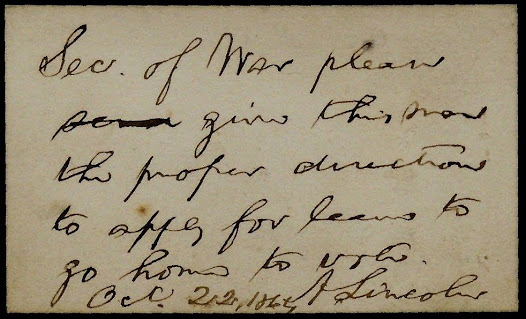 Sec. of War please
send give this man
the proper direction
to apply for leave to
go home to vote.
Oct. 22, 1864 A Lincoln